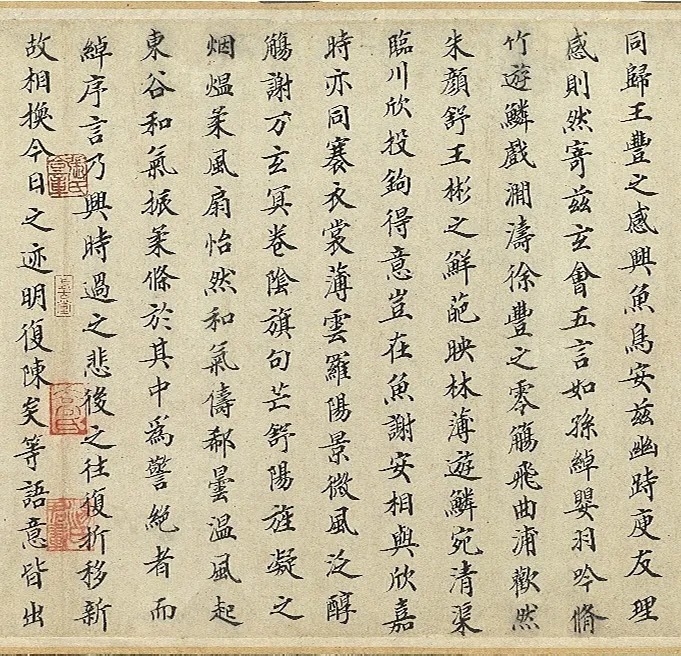 同歸王豐之感興魚鳥安茲幽跱庾友理
感則然寄茲玄會五言如孫綽嬰羽吟脩
竹遊鱗戲澗濤徐豐之零觴飛曲浦歡然
朱顏舒王彬之鮮葩映林薄遊鱗宛清渠
臨川欣投鉤得意豈在魚謝安相與欣嘉
時亦同褰衣裳薄雲羅陽景微風泛醇
觴謝万玄冥卷陰旗句芒舒陽旌凝之
烟熅柔風扇怡然和氣儔郗曇温風起
東谷和氣振柔條於其中爲警絕者而
綽序言乃興時過之悲後之往復折移新
故相換今日之迹明復陳矣等語意皆出